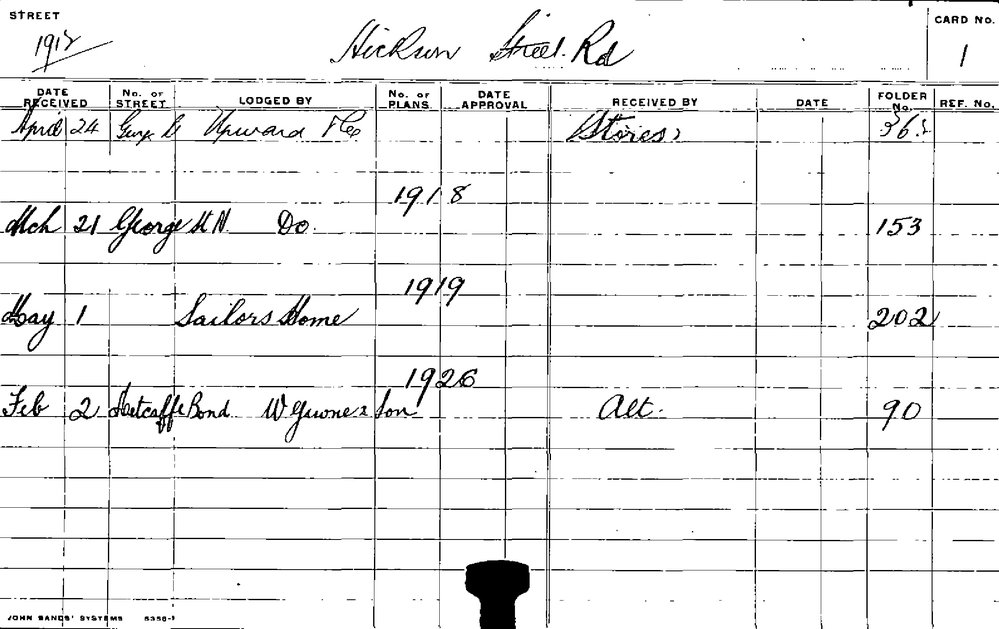 STREET
Hickson Street Rd
CARD No.
1912
1
DATE RECEIVED No. OF STREET LODGED BY No. OF PLANS DATE APPROVAL RECEIVED BY DATE FOLDER No. REF. No.
April 24 Upward & Co Stores
1918
Mch 21 George St N. Do. 153
1919
May 1 Sailors Home 202
1926
Feb 2 Metcalfe Bond W & Son Alt. 90
JOHN SANDS' SYSTEMS